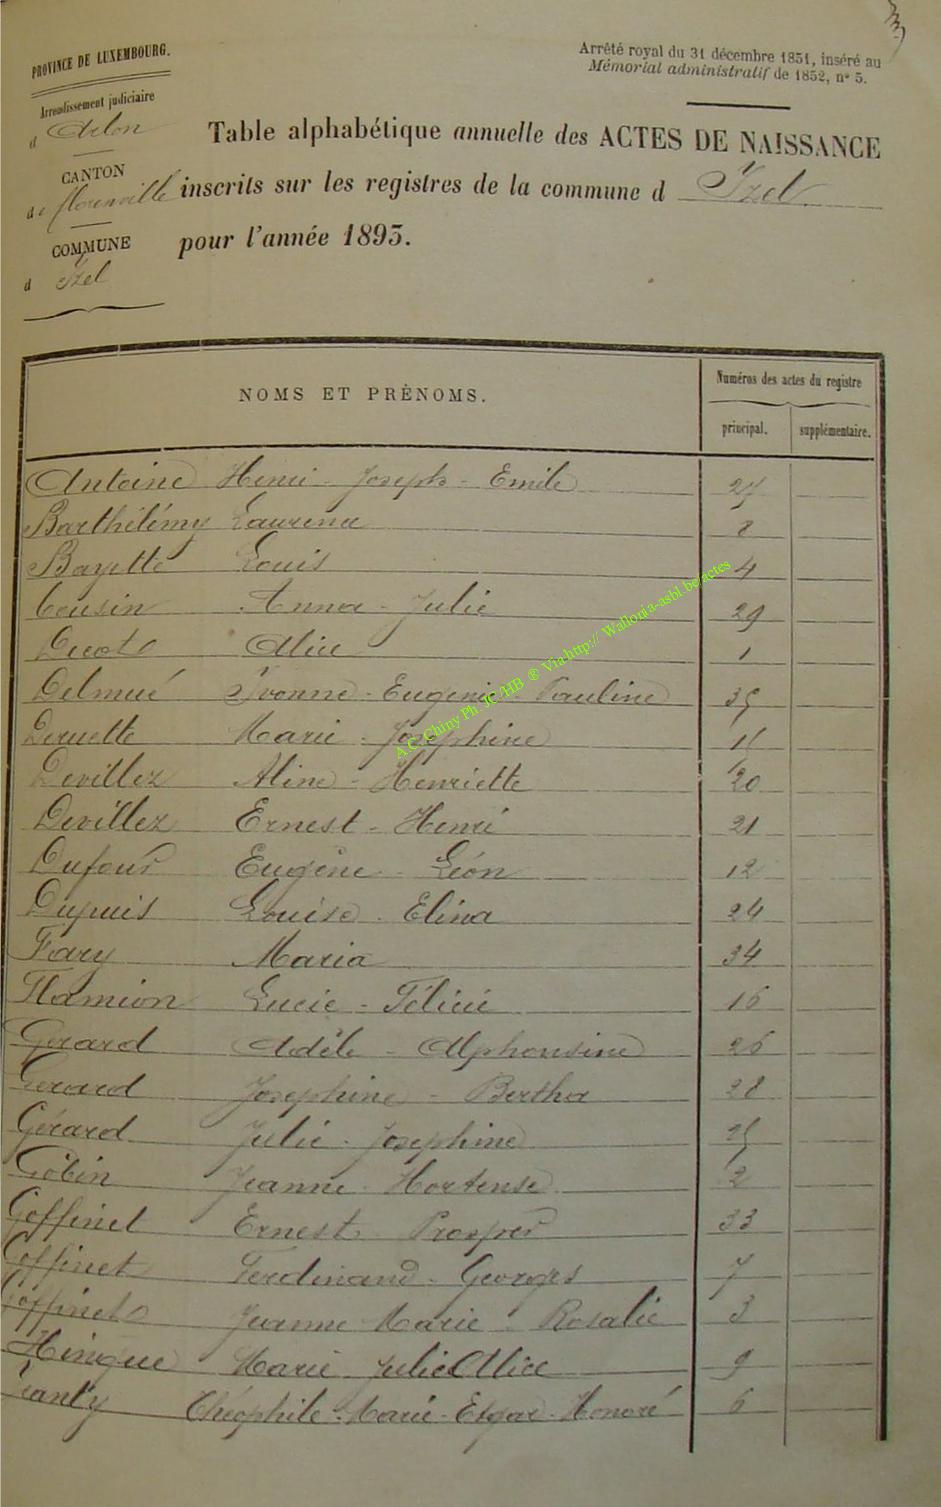 PROVINCE DE LUXEMBOURG.
Arrondissement judiciaire
d Arlon
CANTON
de florenville
COMMUNE
d Izel
Arrêté royal du 31 décembre 1851, inséré au
Mémorial administratif de 1852, n° 5.
Table alphabétique annuelle des ACTES DE NAISSANCE
inscrits sur les registres de la commune d Izel
pour l'année 1893.
NOMS ET PRÉNOMS.
Numéros des actes du registre
principal. supplémentaire.
Antoine Henri - Joseph - Emile 27
Barthélémy Laurence 8
Bayette Louis 4
Cousin Anna - Julie 29
Decot Alice 1
Delmué Yvonne - Eugenie - Pauline 35
Deruette Marie - Joséphine 15
Devillez Aline - Henriette 20
Devillez Ernest - Henri 21
Dufour Eugène - Léon 12
Dupuis Louise - Elina 24
Fary Maria 34
Flamion Lucie - Félicie 16
Gérard Adèle - Alphonsine 26
Gérard Josephine - Bertha 28
Gérard Julie - Josephine 25
Gobin Jeanne - Hortense 2
Goffinet Ernest Prosper 33
Goffinet Ferdinand - Georges 7
Goffinet Jeanne Marie - Rosalie 3
Hinque Marie Julie Alice 9
Janty Théophile - Marie - Edgar - Honoré 6
A.C. Chiny Ph. JC/HB ® Via http:// Wallonia-asbl.be/actes